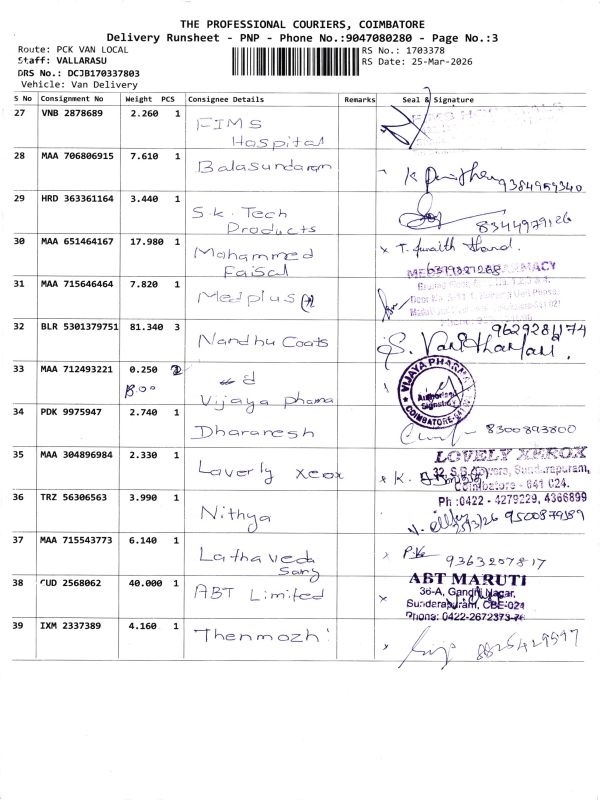 THE PROFESSIONAL COURIERS, COIMBATORE
Delivery Runsheet - PNP - Phone No.:9047080280 - Page No.:3
Route: PCK VAN LOCAL
RS No.: 1703378
Staff: VALLARASU
RS Date: 25-Mar-2026
DRS No.: DCJB170337803
Vehicle: Van Delivery
S No Consignment No Weight PCS Consignee Details Remarks Seal & Signature
27 VNB 2878689 2.260 1 FIMS
Hospital
28 MAA 706806915 7.610 1 Balasundaram
9384959340
29 HRD 363361164 3.440 1 S.k. Tech
Products
8344979126
30 MAA 651464167 17.980 1 Mohammed
Faisal
31 MAA 715646464 7.820 1 Medplus
32 BLR 5301379751 81.340 3 Nandhu Coats
9629281174
33 MAA 712493221 0.250
Vijaya pharma
VIJAYA PHARMA
Authorised
Signatory
COIMBATORE
34 PDK 9975947 2.740 1 Dharanesh
8300893800
35 MAA 304896984 2.330 1 Laverly xeox
LOVELY XEROX
Sundarapuram,
Coimbatore - 641 024.
Ph :0422 - 4279229, 4366899
36 TRZ 56306563 3.990 1 Nithya
9500879189
37 MAA 715543773 6.140 1 Lathaveda
Sang
9363207817
38 CUD 2568062 40.000 1 ABT Limited
ABT MARUTI
36-A, Gandhi Nagar,
Sundarapuram, CBE-024
Phone: 0422-2672373-76
39 IXM 2337389 4.160 1 Thenmozhi
8825429597